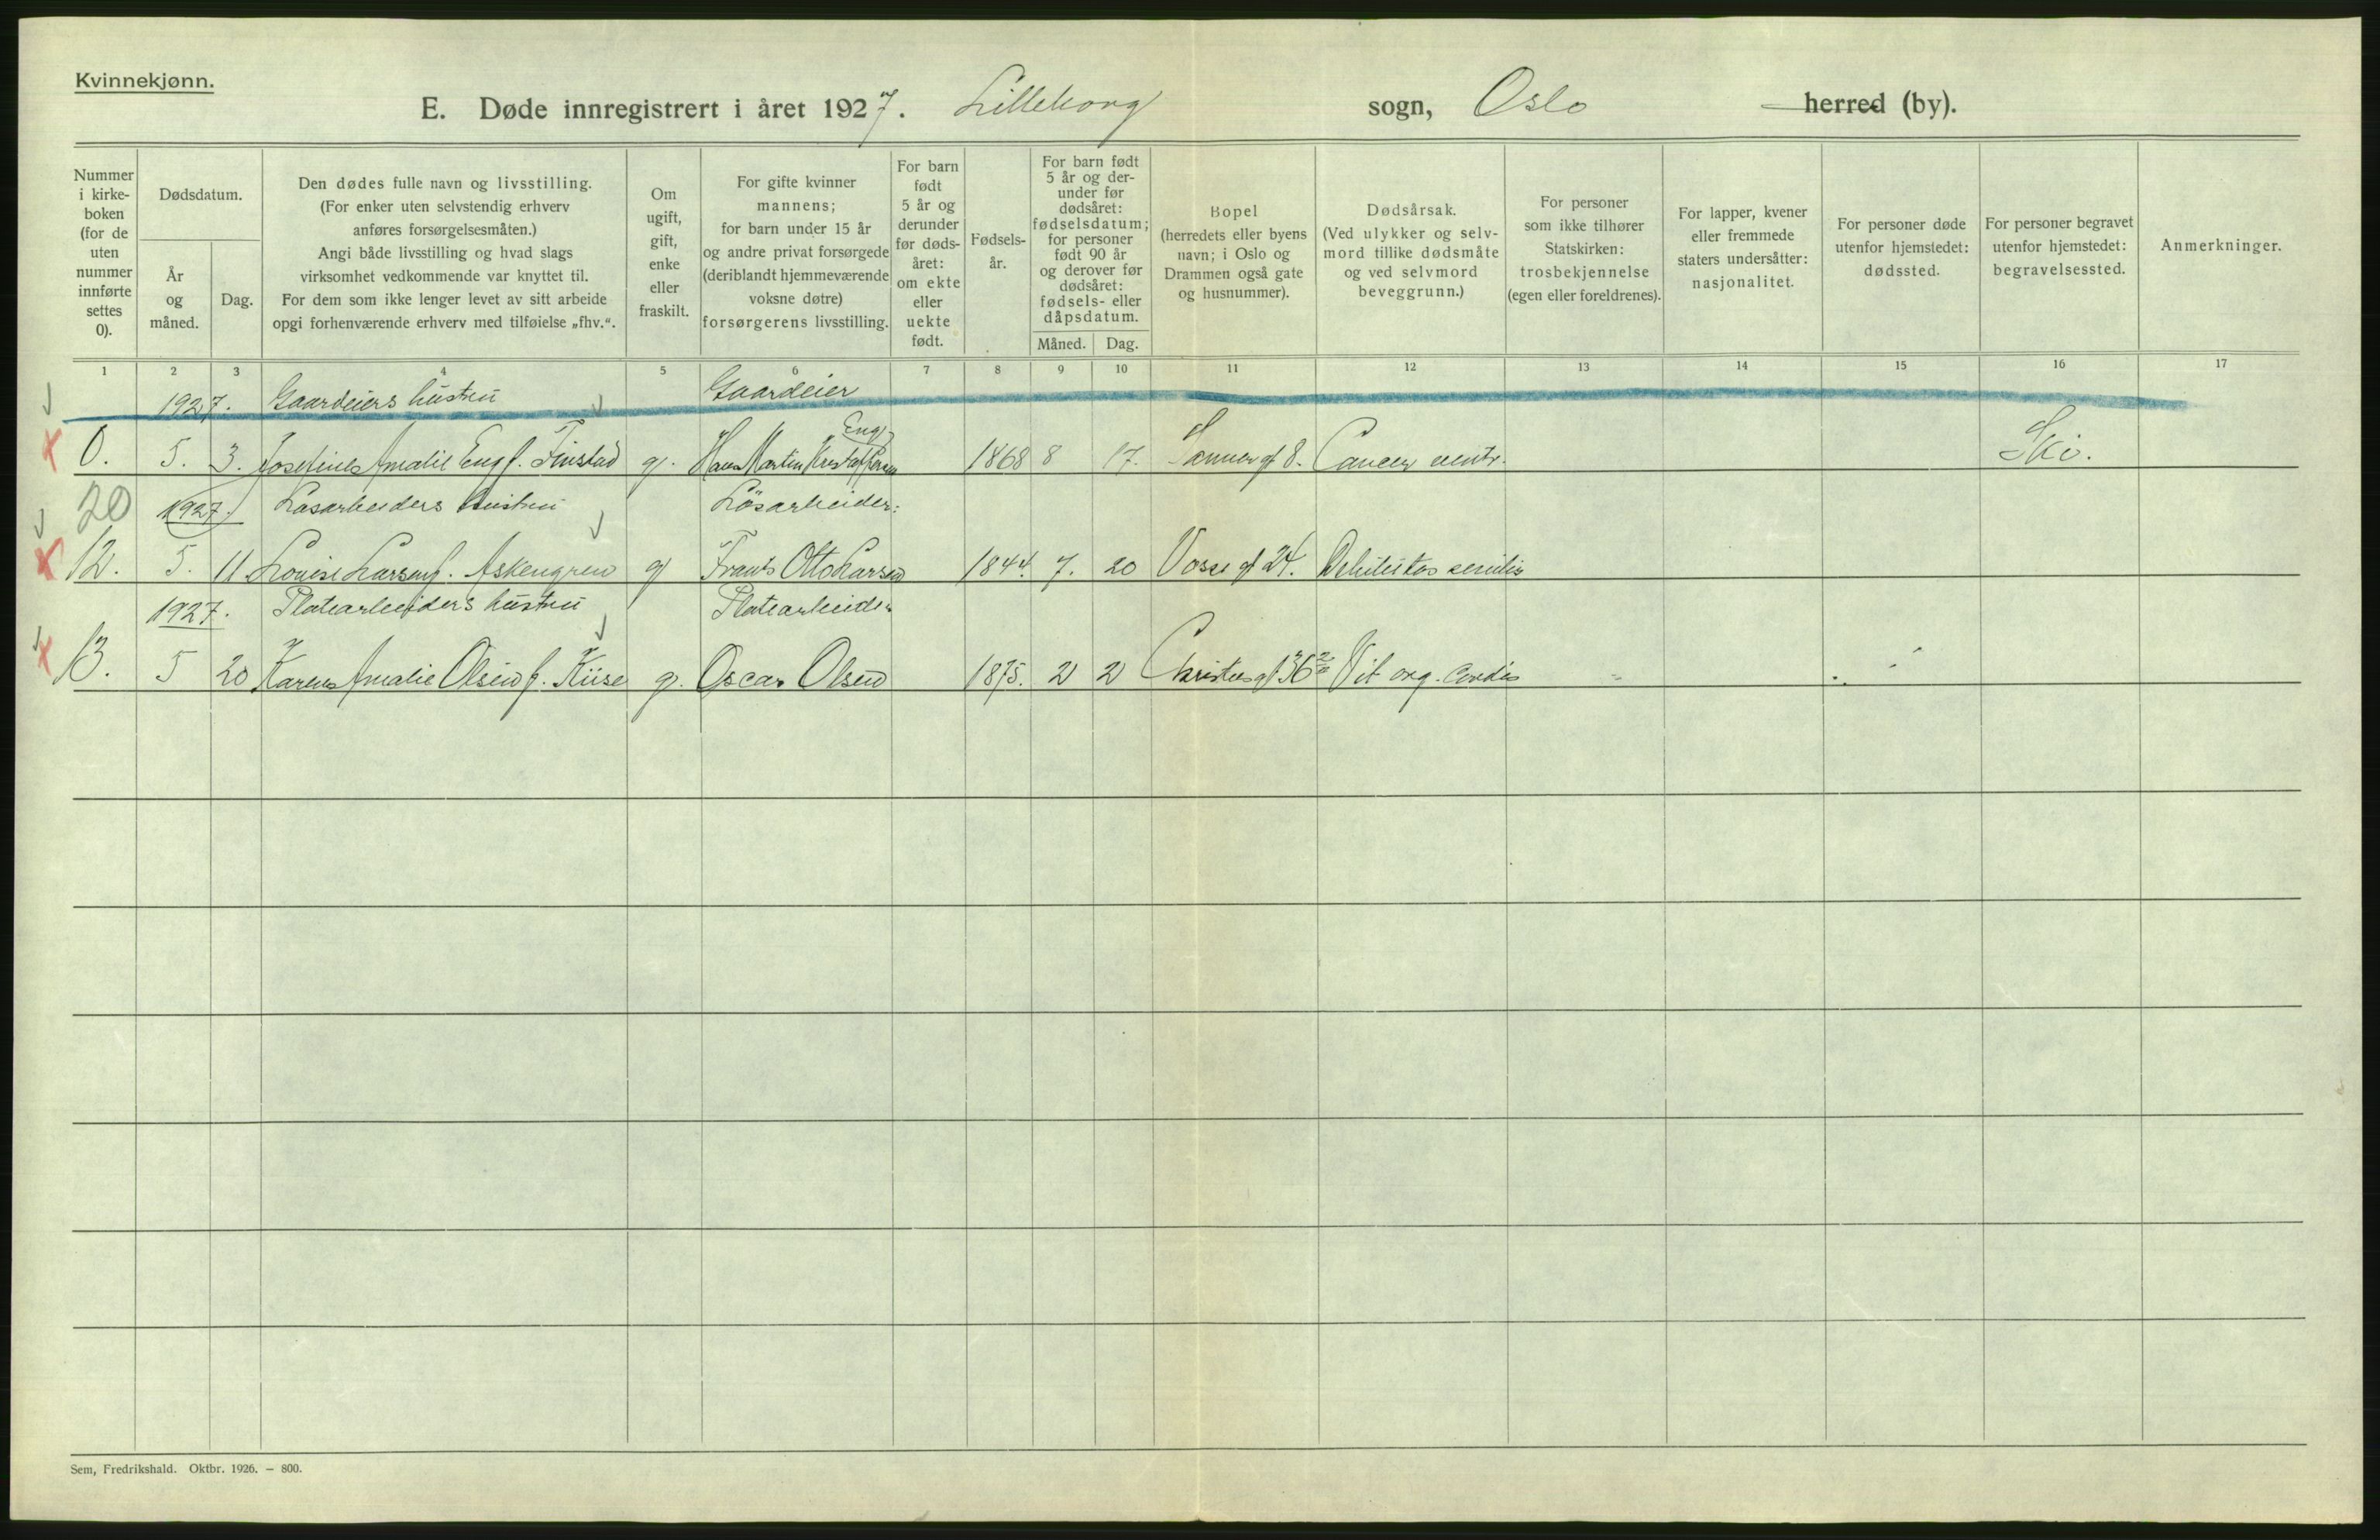 Kvinnekjønn.
E. Døde innregistrert i året 1927. Lilleborg sogn, Oslo herred (by).
Nummer i kirke-boken (for de uten nummer innførte settes 0).
Dødsdatum.
År og måned.
Dag.
Den dødes fulle navn og livsstilling.
(For enker uten selvstendig erhverv
anføres forsørgelsesmåten.)
Angi både livsstilling og hvad slags
virksomhet vedkommende var knyttet til.
For dem som ikke lenger levet av sitt arbeide
opgi forhenværende erhverv med tilføielse „fhv.“.
Om
ugift,
gift,
enke
eller
fraskilt.
For gifte kvinner
mannens;
for barn under 15 år
og andre privat forsørgede
(deriblandt hjemmeværende
voksne døtre)
forsørgerens livsstilling.
For barn
født
5 år og
derunder
før døds-
året:
om ekte
eller
uekte
født.
Fødsels-
år.
For barn født
5 år og der-
under før
dødsåret:
fødselsdatum;
for personer
født 90 år
og derover før
dødsåret:
fødsels- eller
dåpsdatum.
Måned.
Dag.
Bopel
(herredets eller byens
navn; i Oslo og
Drammen også gate
og husnummer).
Dødsårsak.
(Ved ulykker og selv-
mord tillike dødsmåte
og ved selvmord
beveggrunn.)
For personer
som ikke tilhører
Statskirken:
trosbekjennelse
(egen eller foreldrenes).
For lapper, kvener
eller fremmede
staters undersåtter:
nasjonalitet.
For personer døde
utenfor hjemstedet:
dødssted.
For personer begravet
utenfor hjemstedet:
begravelsessted.
Anmerkninger.
1 2 3 4 5 6 7 8 9 10 11 12 13 14 15 16 17
1927. Gaardeiers hustru Gaardeier
Eng
0. 5. 3. Josefine Amalie Eng f. Finstad g. Hans Martin Kristoffersen 1868 8 17. Sannergt 8. Cancer ventr. Ski.
20 1927. Løsarbeiders hustru Løsarbeider:
12. 5. 11 Louise Larsen f. Askengren g Frants Otto Larsen 1844. 7. 20 Vossegt 24. Debilitas senilis
1927. Platearbeiders hustru Platearbeider
13. 5 20 Karen Amalie Olsen f. Kiise g. Oscar Olsen 1875. 2 2 Christiesgt 36 Vit. org. cordis
Sem, Fredrikshald. Oktbr. 1926. – 800.